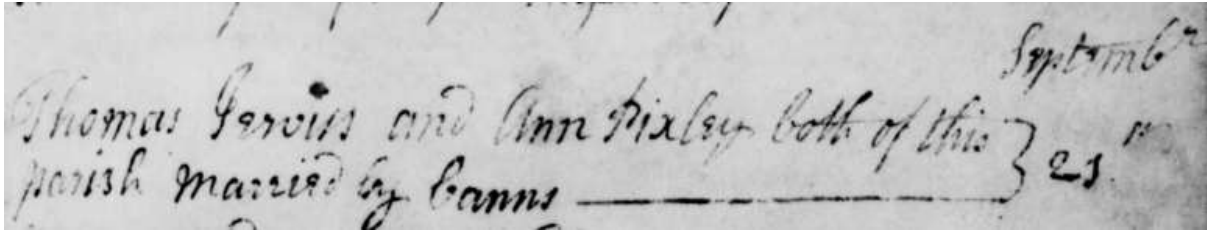 Septembr
Thomas Jerviss and Ann Pixley both of this
parish married by banns 21